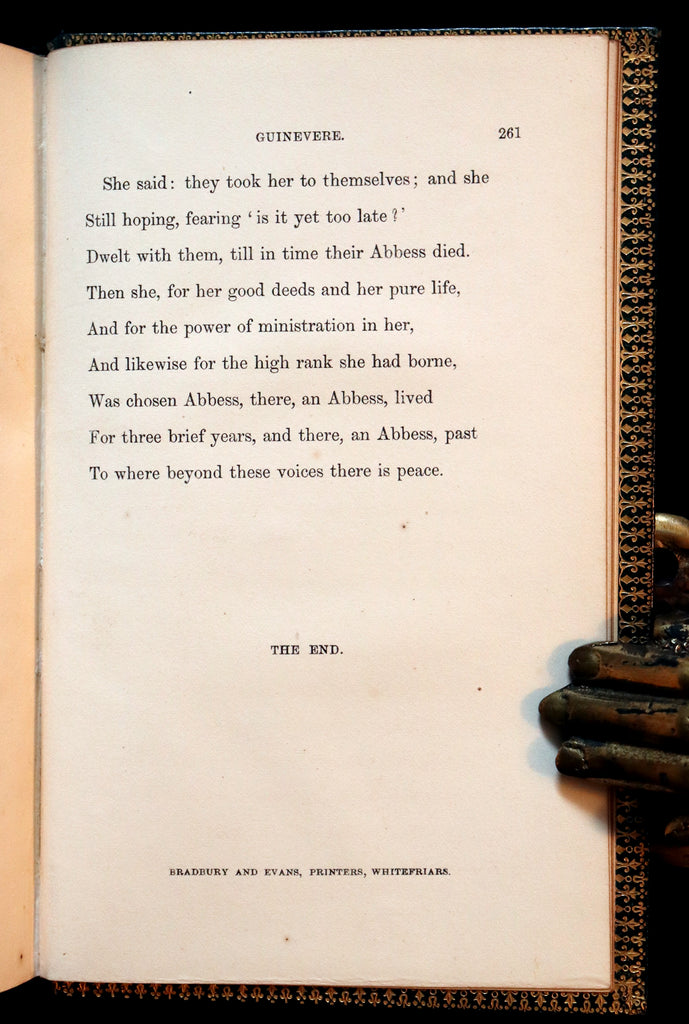 GUINEVERE. 261
She said: they took her to themselves; and she
Still hoping, fearing ‘is it yet too late?’
Dwelt with them, till in time their Abbess died.
Then she, for her good deeds and her pure life,
And for the power of ministration in her,
And likewise for the high rank she had borne,
Was chosen Abbess, there, an Abbess, lived
For three brief years, and there, an Abbess, past
To where beyond these voices there is peace.
THE END.
BRADBURY AND EVANS, PRINTERS, WHITEFRIARS.